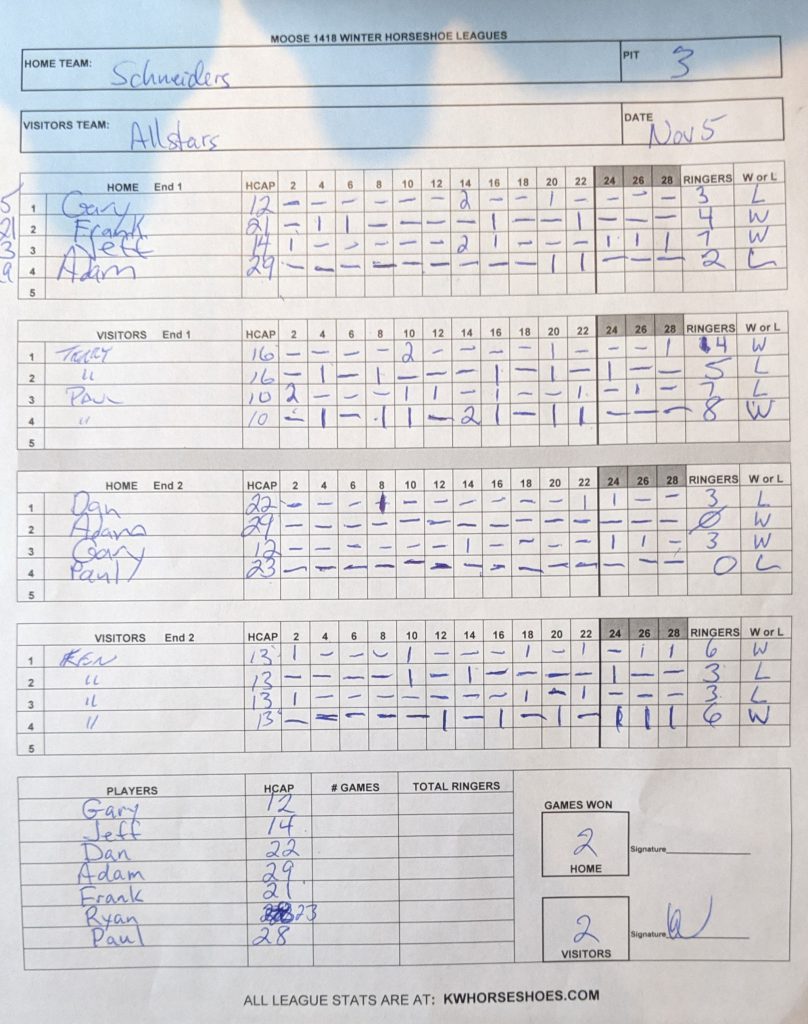 MOOSE 1418 WINTER HORSESHOE LEAGUES
HOME TEAM: Schneiders PIT 3
VISITORS TEAM: Allstars DATE Nov 5
HOME End 1 HCAP 2 4 6 8 10 12 14 16 18 20 22 24 26 28 RINGERS W or L
1 Gary 12 - - - - - - 2 - - 1 - - - - 3 L
2 Frank 21 - 1 1 - - - - 1 - - 1 - - - 4 W
3 Jeff 14 1 - - - - - 2 1 - - - 1 1 1 7 W
4 Adam 29 - - - - - - - - - 1 1 - - - 2 L
5
VISITORS End 1 HCAP 2 4 6 8 10 12 14 16 18 20 22 24 26 28 RINGERS W or L
1 TERRY 16 - - - - 2 - - - - 1 - - - 1 4 W
2 " 16 - 1 - 1 - - - 1 - 1 - 1 - - 5 L
3 PAUL 10 2 - - - 1 1 - 1 - - 1 - 1 - 7 L
4 " 10 - 1 - 1 1 - 2 1 - 1 1 - - - 8 W
5
HOME End 2 HCAP 2 4 6 8 10 12 14 16 18 20 22 24 26 28 RINGERS W or L
1 Dan 22 - - - 1 - - - - - - 1 1 - - 3 L
2 Adam 29 - - - - - - - - - - - - - - 0 W
3 Gary 12 - - - - - - 1 - - - - 1 1 - 3 W
4 Paul 23 - - - - - - - - - - - - - - 0 L
5
VISITORS End 2 HCAP 2 4 6 8 10 12 14 16 18 20 22 24 26 28 RINGERS W or L
1 KEN 13 1 - - - 1 - - - 1 - 1 - 1 1 6 W
2 " 13 - - - - 1 - 1 - - - - 1 - - 3 L
3 " 13 1 - - - - - - - 1 - 1 - - - 3 L
4 " 13 - - - - - 1 - 1 - 1 - 1 1 1 6 W
5
PLAYERS HCAP # GAMES TOTAL RINGERS
Gary 12
Jeff 14
Dan 22
Adam 29
Frank 21
Ryan 23
Paul 28
GAMES WON
2
HOME
Signature
2
VISITORS
Signature
ALL LEAGUE STATS ARE AT: KWHORSESHOES.COM